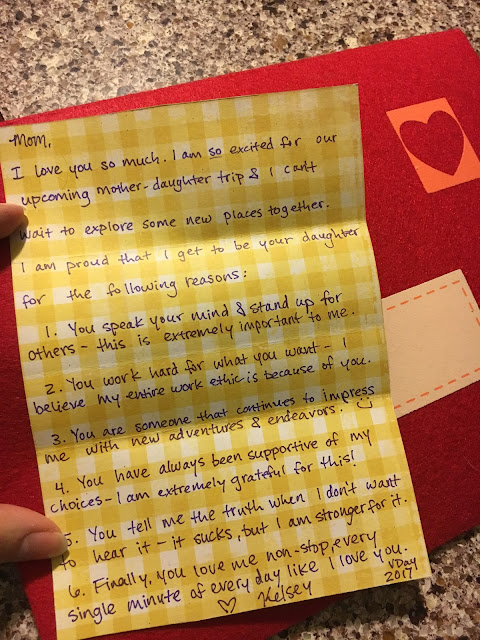 Mom,
I love you so much. I am so excited for our
upcoming mother-daughter trip & I can't
wait to explore some new places together.
I am proud that I get to be your daughter
for the following reasons:
1. You speak your mind & stand up for
others - this is extremely important to me.
2. You work hard for what you want - I
believe my entire work ethic is because of you.
3. You are someone that continues to impress
me with new adventures & endeavors. :)
4. You have always been supportive of my
choices - I am extremely grateful for this!
5. You tell me the truth when I don't want
to hear it - it sucks, but I am stronger for it.
6. Finally, you love me non-stop, every
single minute of every day like I love you.
♡ Kelsey
VDay
2017